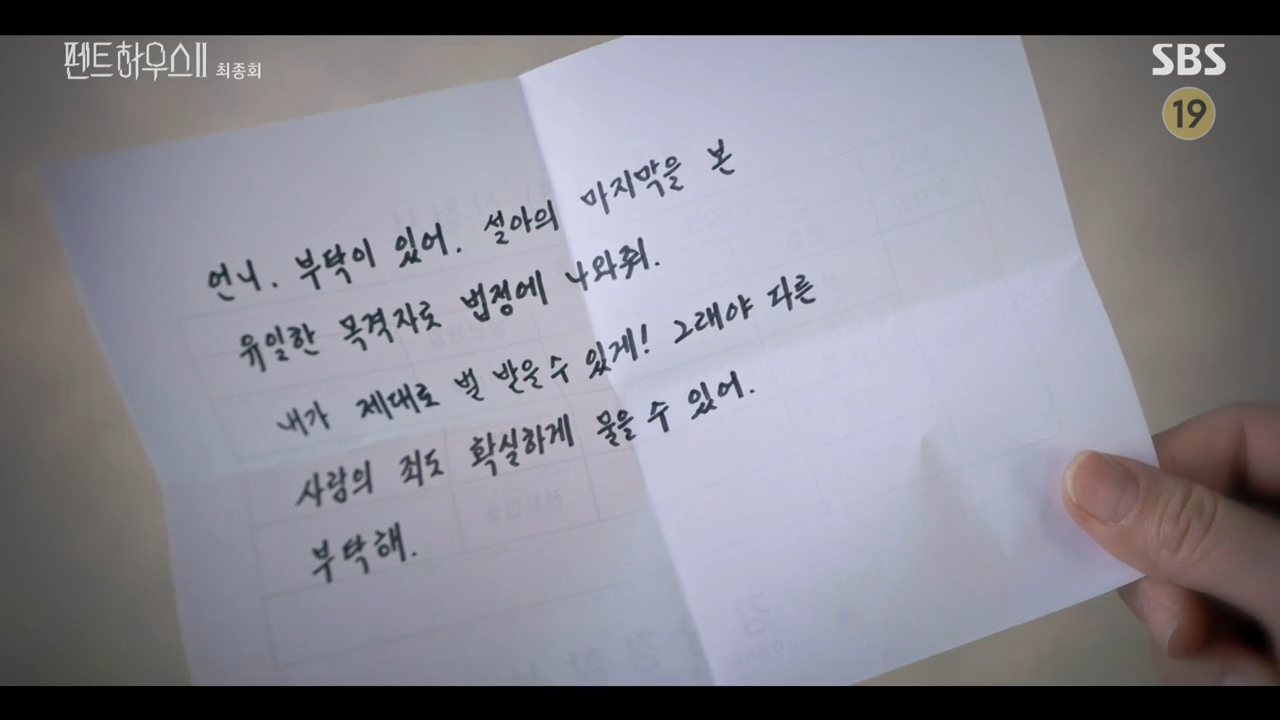 펜트하우스II 최종회
SBS
19
언니. 부탁이 있어. 설아의 마지막을 본
유일한 목격자로 법정에 나와줘.
내가 제대로 벌 받을 수 있게! 그래야 다른
사람의 죄도 확실하게 물을 수 있어.
부탁해.